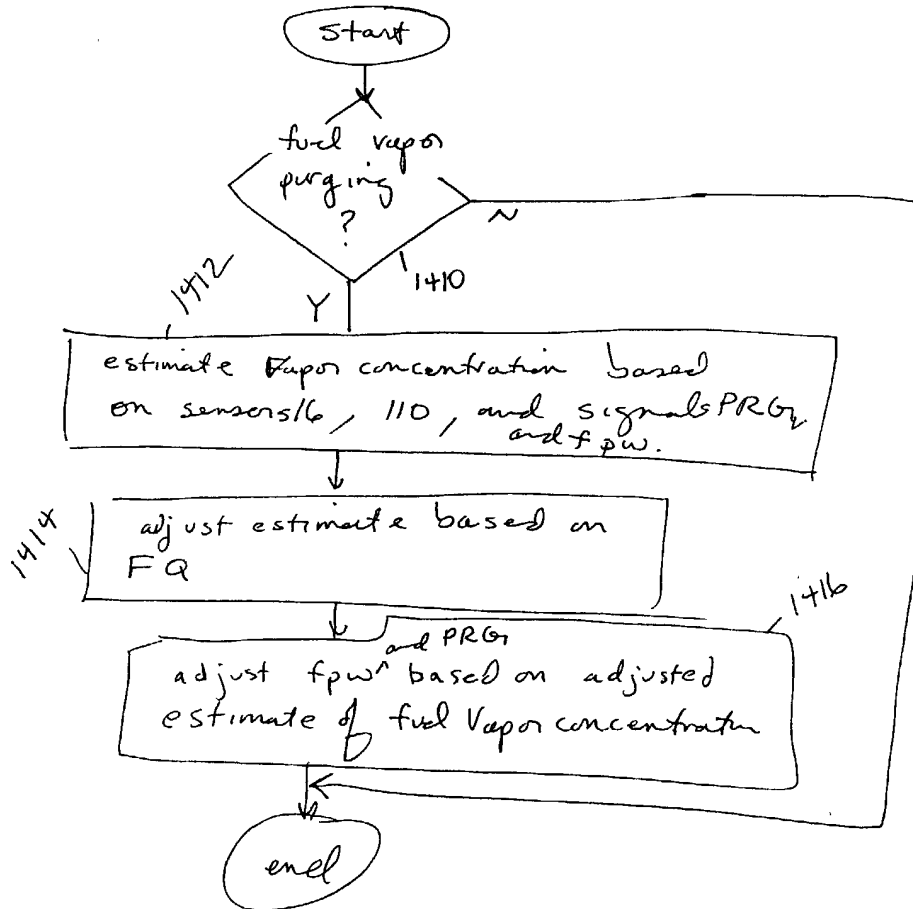 start
fuel vapor
purging
?
N
1410
Y
1412
estimate vapor concentration based
on sensors 16, 110, and signals PRG,
and fpw.
1414
adjust estimate based on
FQ
1416
and PRG
adjust fpw ^ based on adjusted
estimate of fuel vapor concentration
end